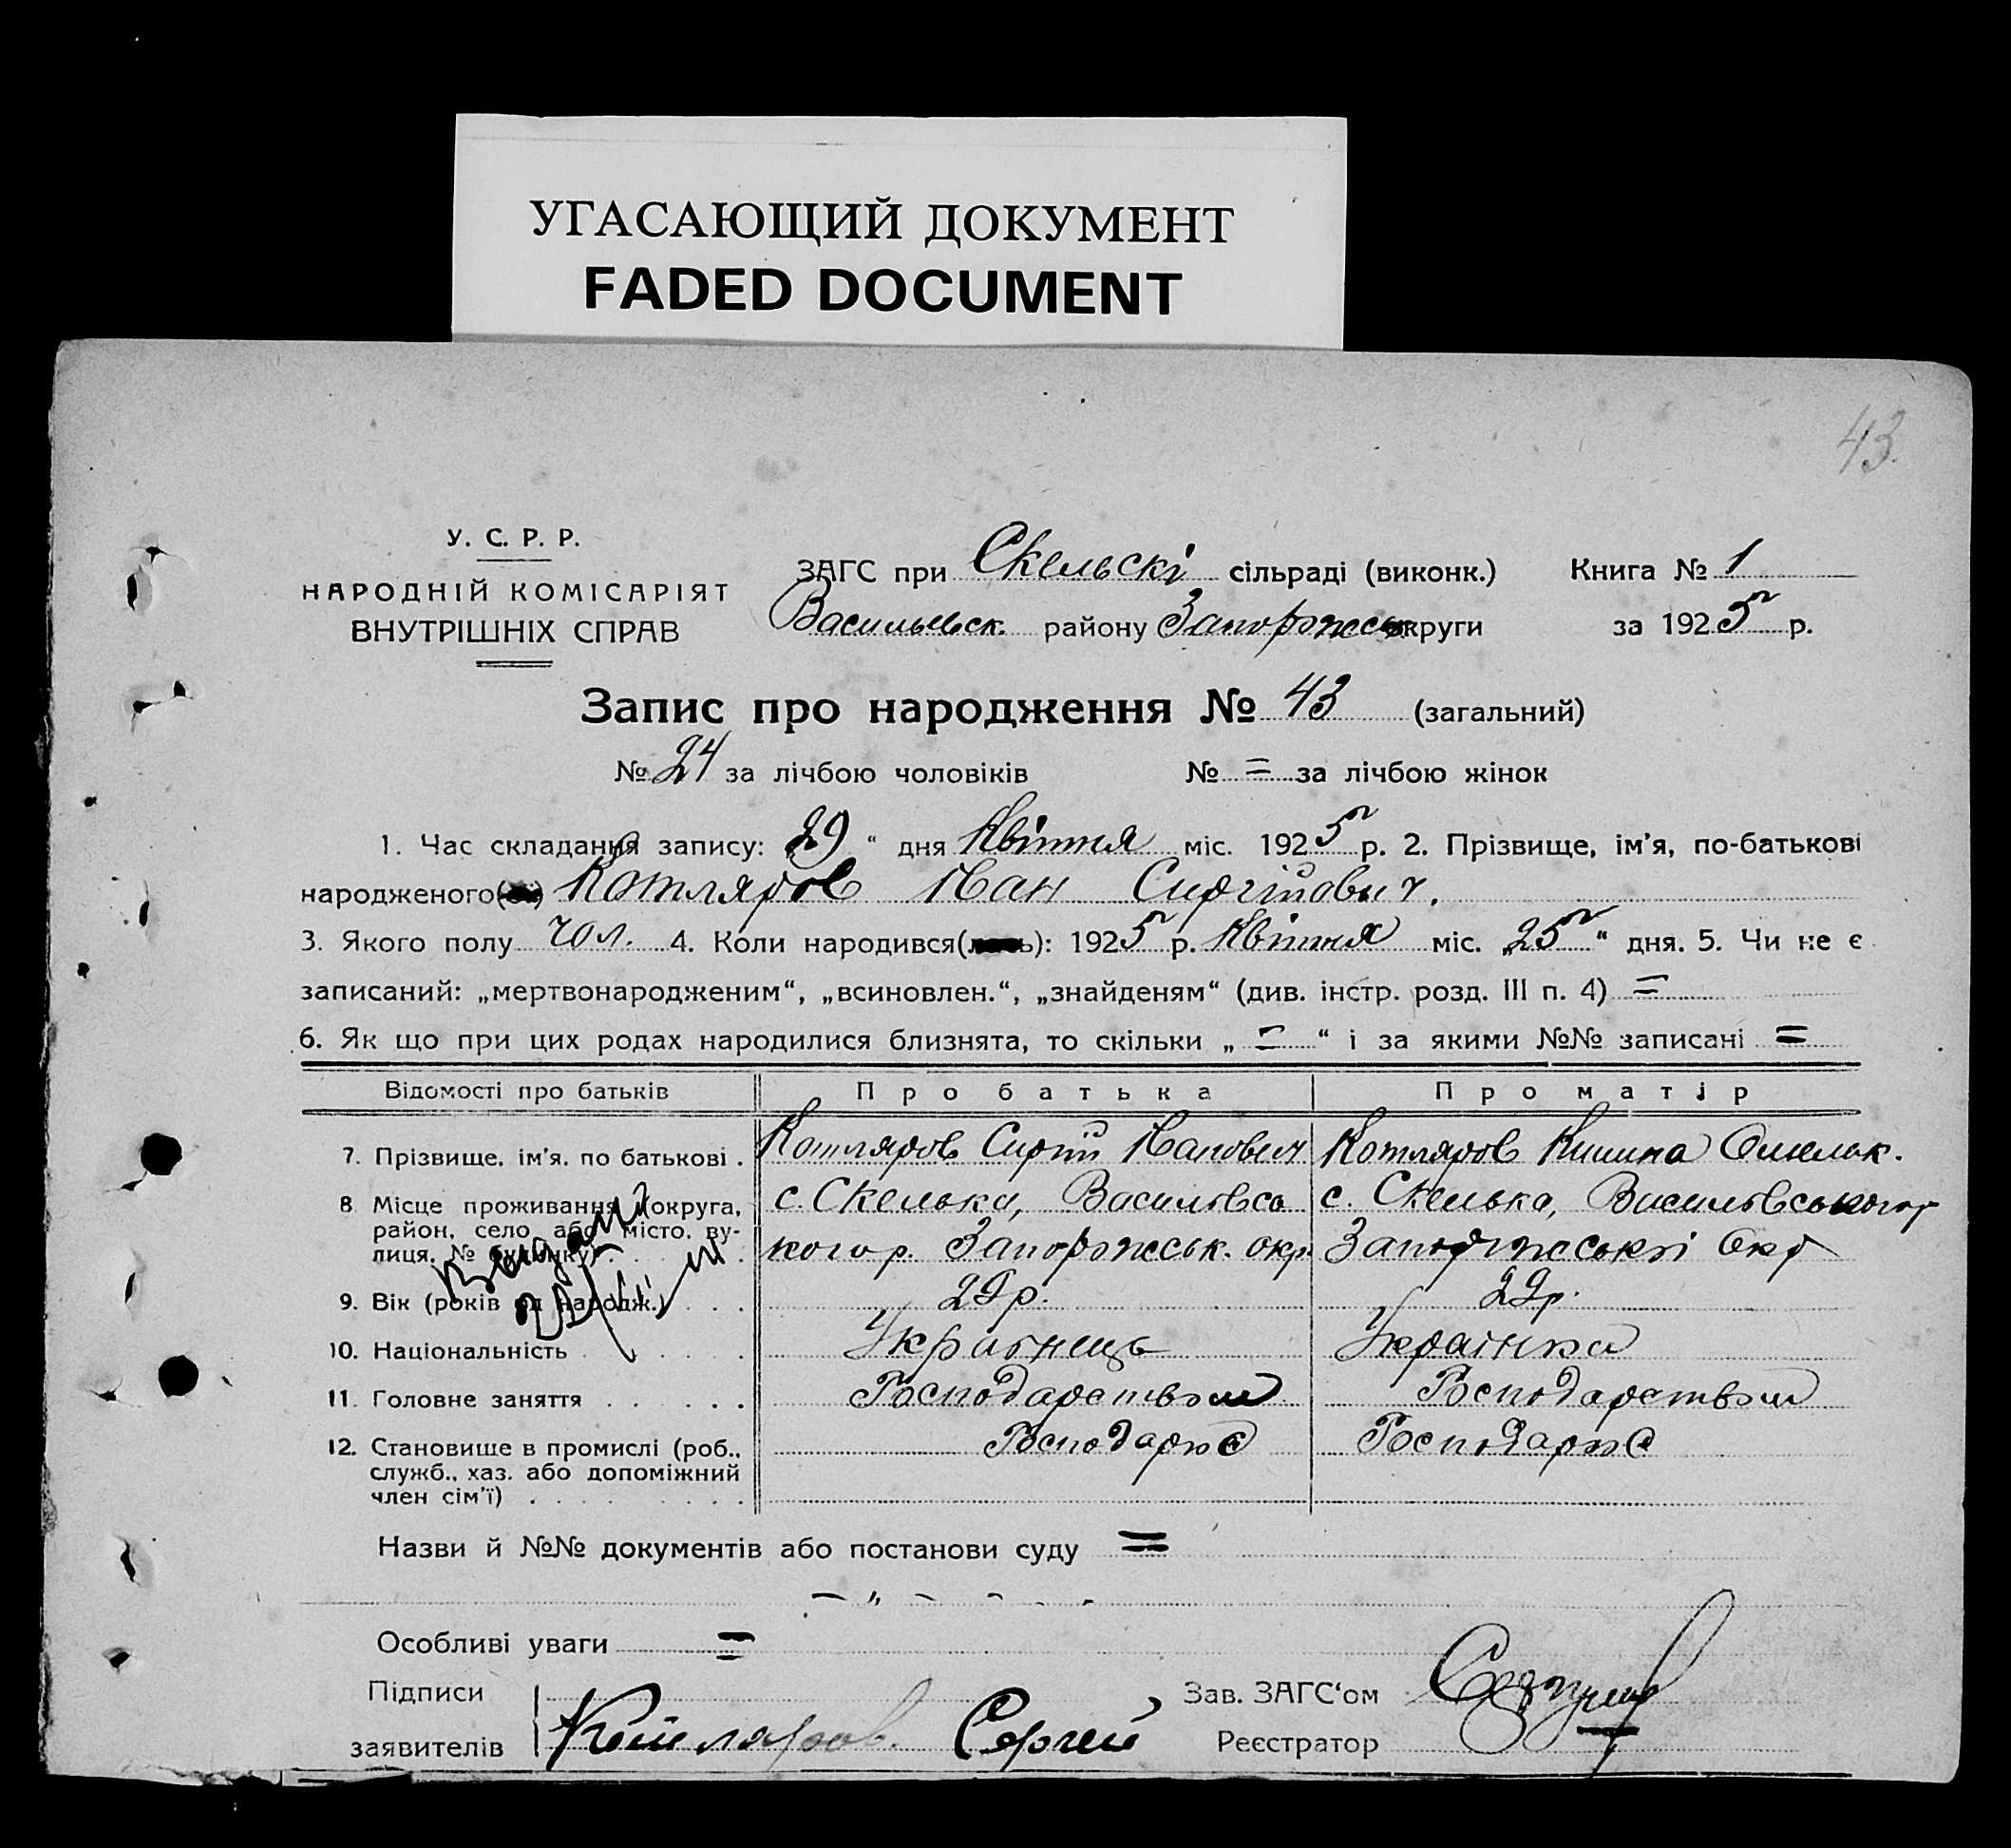 УГАСАЮЩИЙ ДОКУМЕНТ
FADED DOCUMENT
43.
У. С. Р. Р.
НАРОДНІЙ КОМІСАРІЯТ
ВНУТРІШНІХ СПРАВ
ЗАГС при Скельскі сільраді (виконк.) Книга № 1
Васильевск. району Запорожськ округи за 1925 р.
Запис про народження № 43 (загальний)
№ 24 за лічбою чоловіків № = за лічбою жінок
1. Час складання запису: 29 “ дня Квітня міс. 1925 р. 2. Прізвище, ім'я, по-батькові
народженого Котляров Иван Сиргійович.
3. Якого полу чол. 4. Коли народився 1925 р. Квітня міс. „25“ дня. 5. Чи не є
записаний: „мертвонародженим“, „всиновлен.“, „знайденям“ (див. інстр. розд. III п. 4) =
6. Як що при цих родах народилися близнята, то скільки „ = “ і за якими №№ записані =
Відомості про батьків Про батька Про матір
7. Прізвище. ім'я. по батькові . Котляров Сиргій Иванович Котляров Омельк.
8 Місце проживання (округа, с. Скелька, Васильвсь с. Скелька, Васильвського р
район, село або місто. ву-
лиця. № будинку) кого р. Запорожськ. окр. Запорожської Окр
9. Вік (років од народж.) . . . 29 р. 29 р.
10. Національність Українець Українка
11. Головне заняття Господарством Господарством
12. Становище в промислі (роб., Господарює Господарює
служб., хаз. або допоміжний
член сім'ї)
Назви й №№ документів або постанови суду =
— „ —
Особливі уваги =
Підписи Зав. ЗАГС‘ом
заявителів Котляров. Сергей Реєстратор